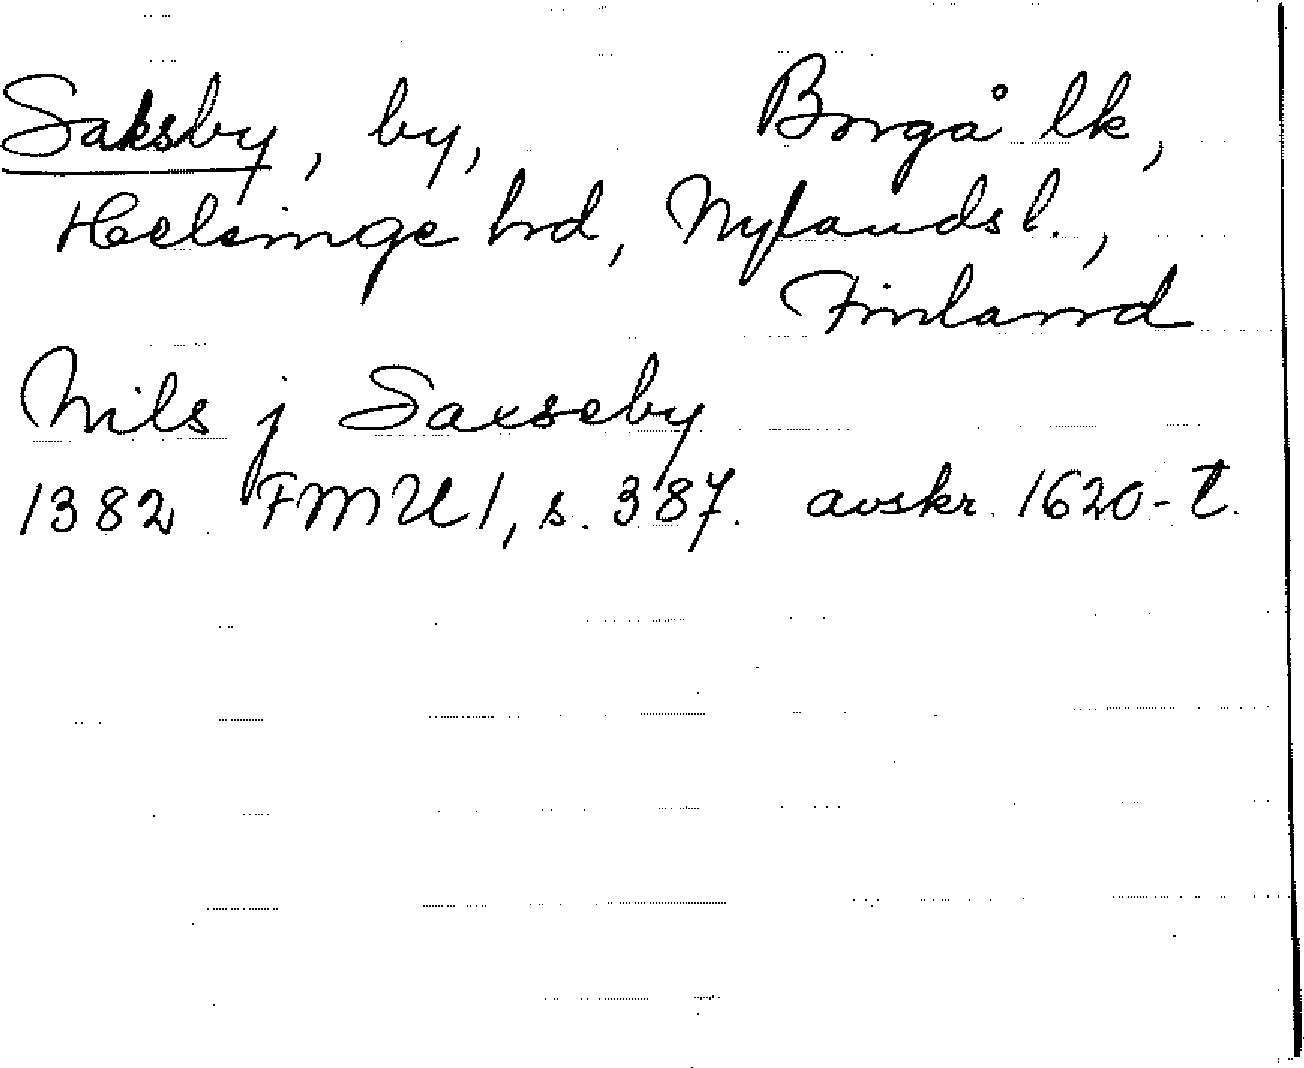 Saksby, by, Borgå lk,
Helsinge hrd, Nylands l.,
Finland
Nils j Saxseby
1382 FMU 1, s. 387. avskr. 1620-t.